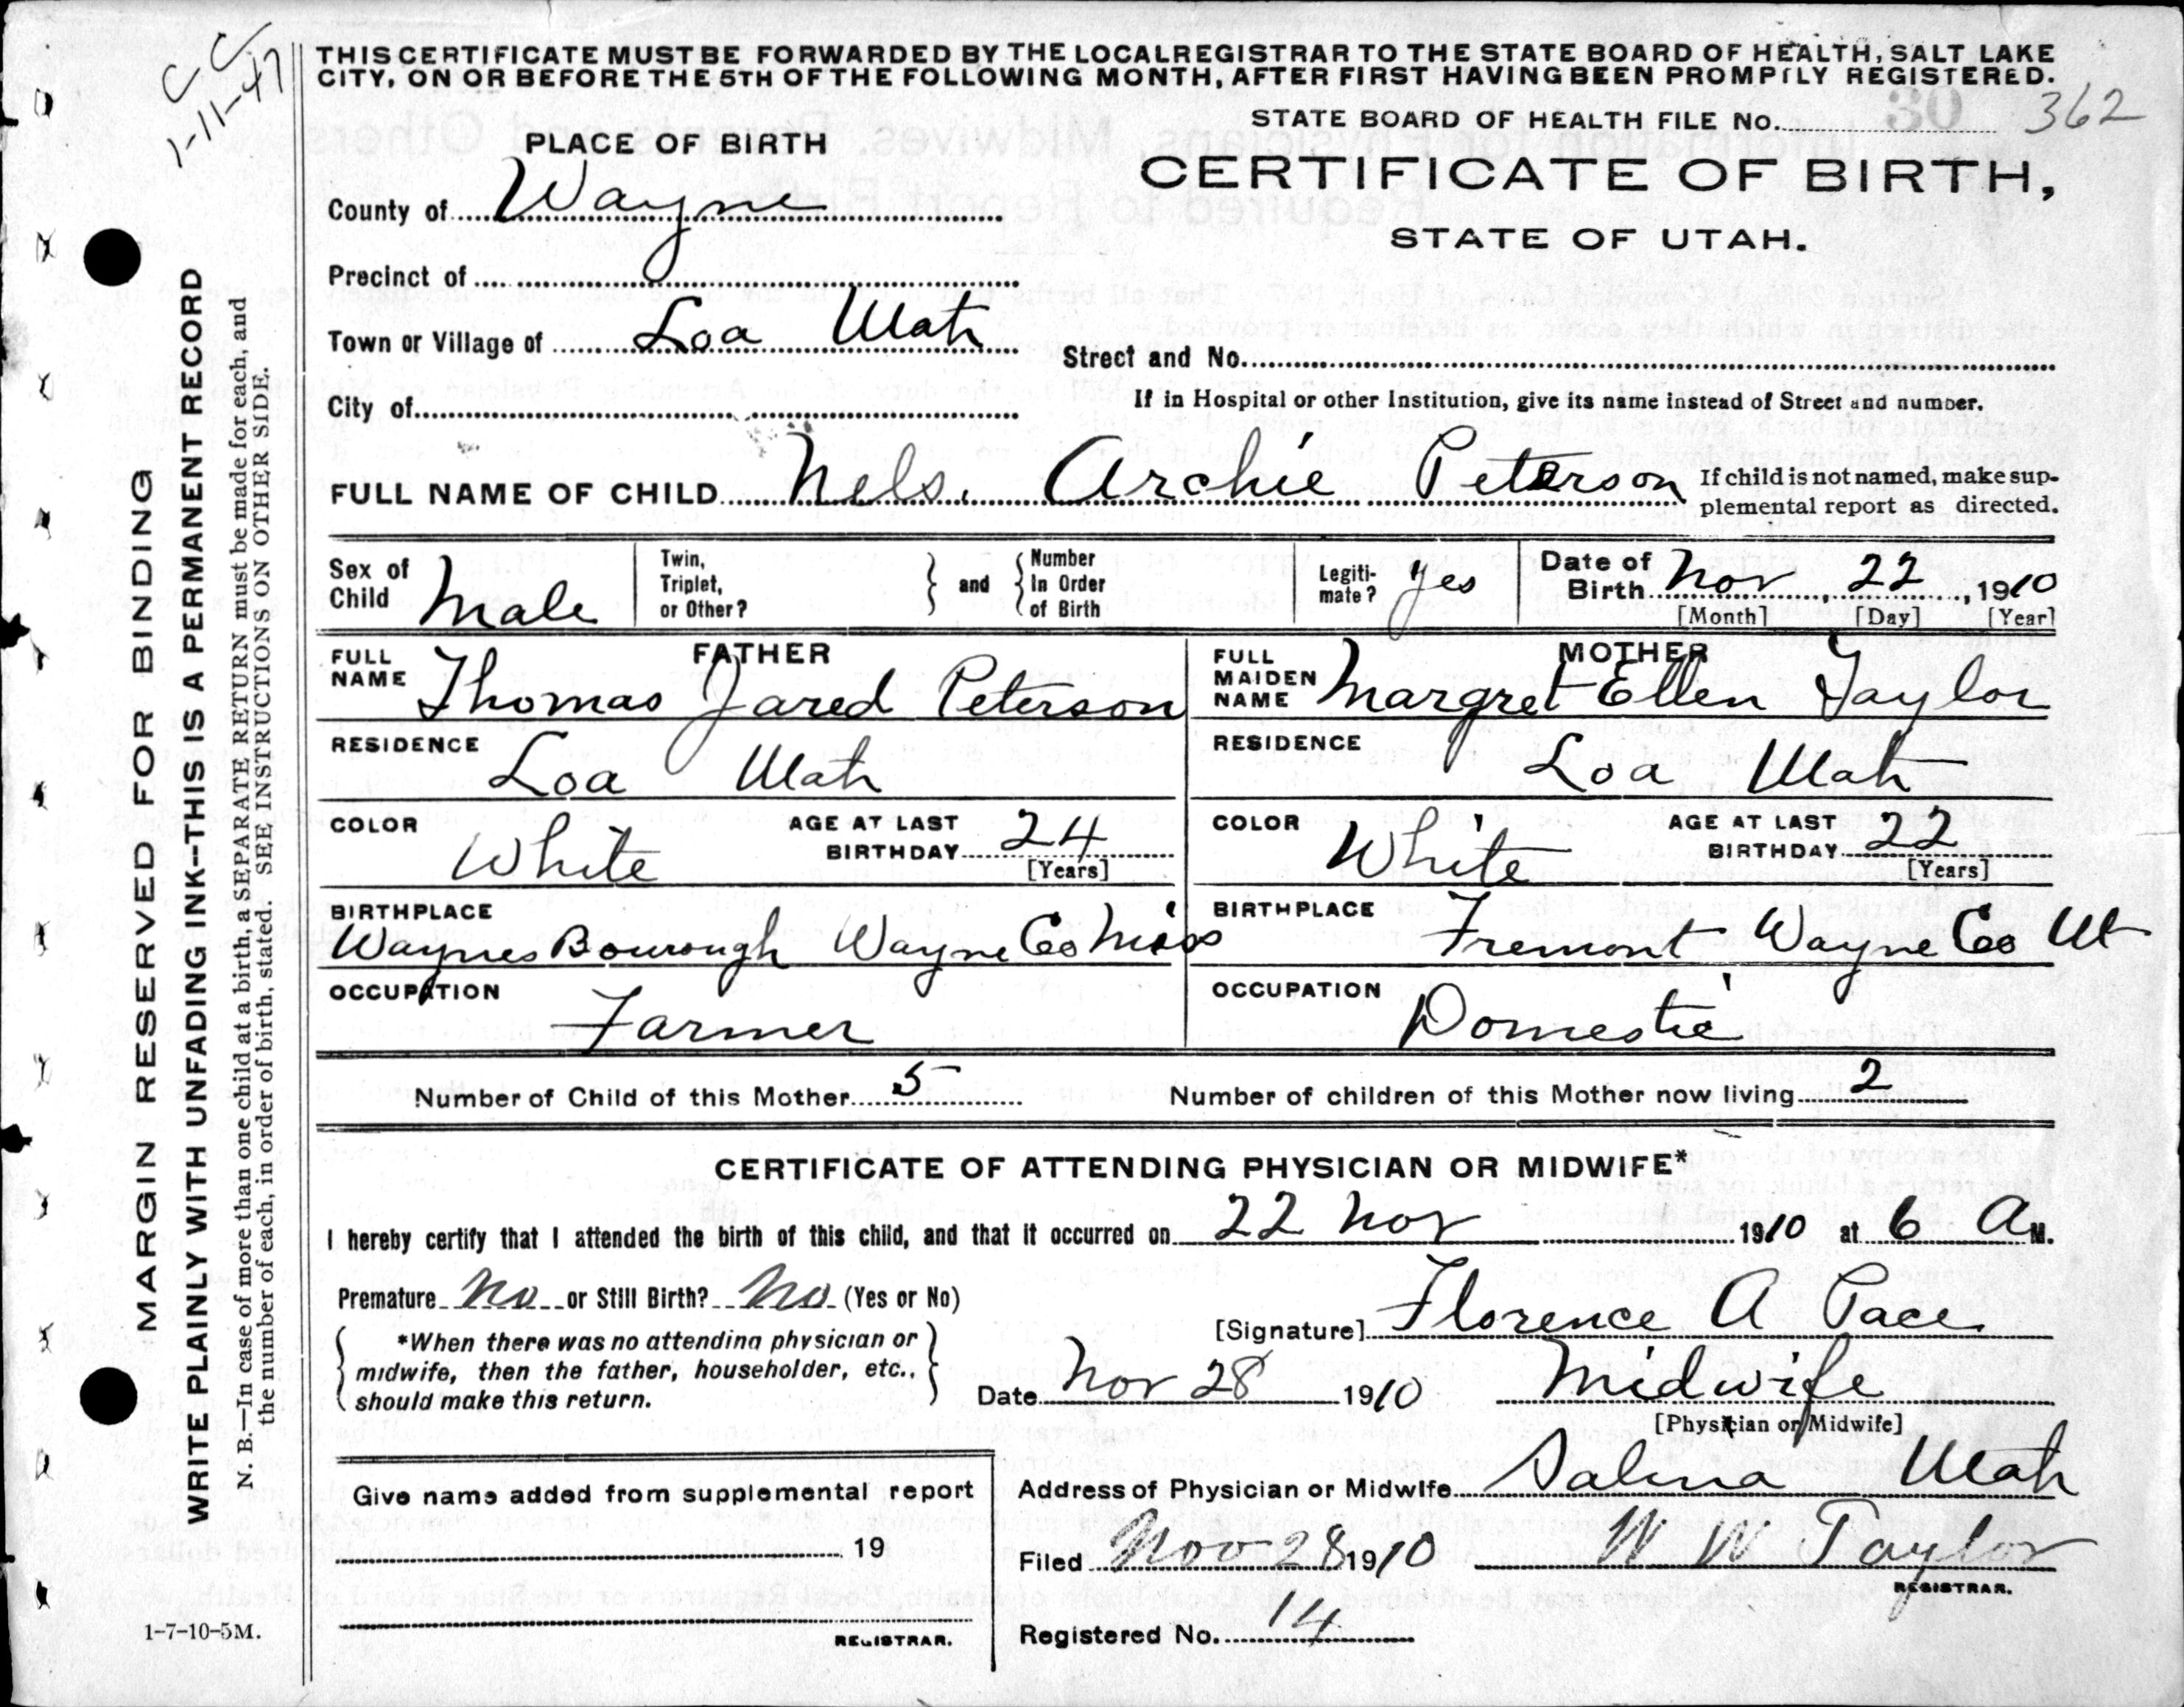 C C
1-11-47
THIS CERTIFICATE MUST BE FORWARDED BY THE LOCAL REGISTRAR TO THE STATE BOARD OF HEALTH, SALT LAKE
CITY, ON OR BEFORE THE 5TH OF THE FOLLOWING MONTH, AFTER FIRST HAVING BEEN PROMPTLY REGISTERED.
STATE BOARD OF HEALTH FILE No. 30 362
PLACE OF BIRTH
CERTIFICATE OF BIRTH,
STATE OF UTAH.
County of Wayne
Precinct of
Town or Village of Loa Utah
Street and No.
City of
If in Hospital or other Institution, give its name instead of Street and number.
FULL NAME OF CHILD Nels. Archie Peterson
If child is not named, make sup-
plemental report as directed.
Sex of
Child Male
Twin,
Triplet,
or Other?
and
Number
In Order
of Birth
Legiti-
mate? Yes
Date of
Birth Nov, 22, 1910
[Month] [Day] [Year]
FATHER
FULL
NAME Thomas Jared Peterson
MOTHER
FULL
MAIDEN
NAME Margret Ellen Taylor
RESIDENCE
Loa Utah
RESIDENCE
Loa Utah
COLOR
White
AGE AT LAST
BIRTHDAY 24
[Years]
COLOR
White
AGE AT LAST
BIRTHDAY 22
[Years]
BIRTHPLACE
Waynes Bourough Wayne Co Miss
BIRTHPLACE
Fremont Wayne Co Ut
OCCUPATION
Farmer
OCCUPATION
Domestic
Number of Child of this Mother 5
Number of children of this Mother now living 2
CERTIFICATE OF ATTENDING PHYSICIAN OR MIDWIFE*
I hereby certify that I attended the birth of this child, and that it occurred on 22 Nov 1910 at 6 A M.
Premature No or Still Birth? No (Yes or No)
*When there was no attending physician or
midwife, then the father, householder, etc.,
should make this return.
[Signature] Florence A Pace
Date Nov 28 1910 Midwife
[Physician or Midwife]
Give name added from supplemental report
19
REGISTRAR.
Address of Physician or Midwife Salina Utah
Filed Nov 28 1910 W W Taylor
REGISTRAR.
Registered No. 14
MARGIN RESERVED FOR BINDING
WRITE PLAINLY WITH UNFADING INK--THIS IS A PERMANENT RECORD
N. B.—In case of more than one child at a birth, a SEPARATE RETURN must be made for each, and
the number of each, in order of birth, stated. SEE INSTRUCTIONS ON OTHER SIDE.
1-7-10-5M.